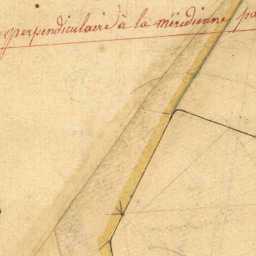 perpendiculaire à la méridienne pa